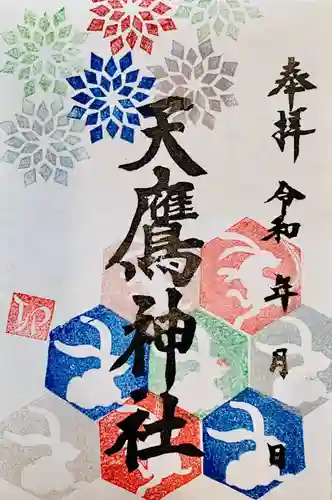 奉拝 令和 年 月 日
天鷹神社
卯